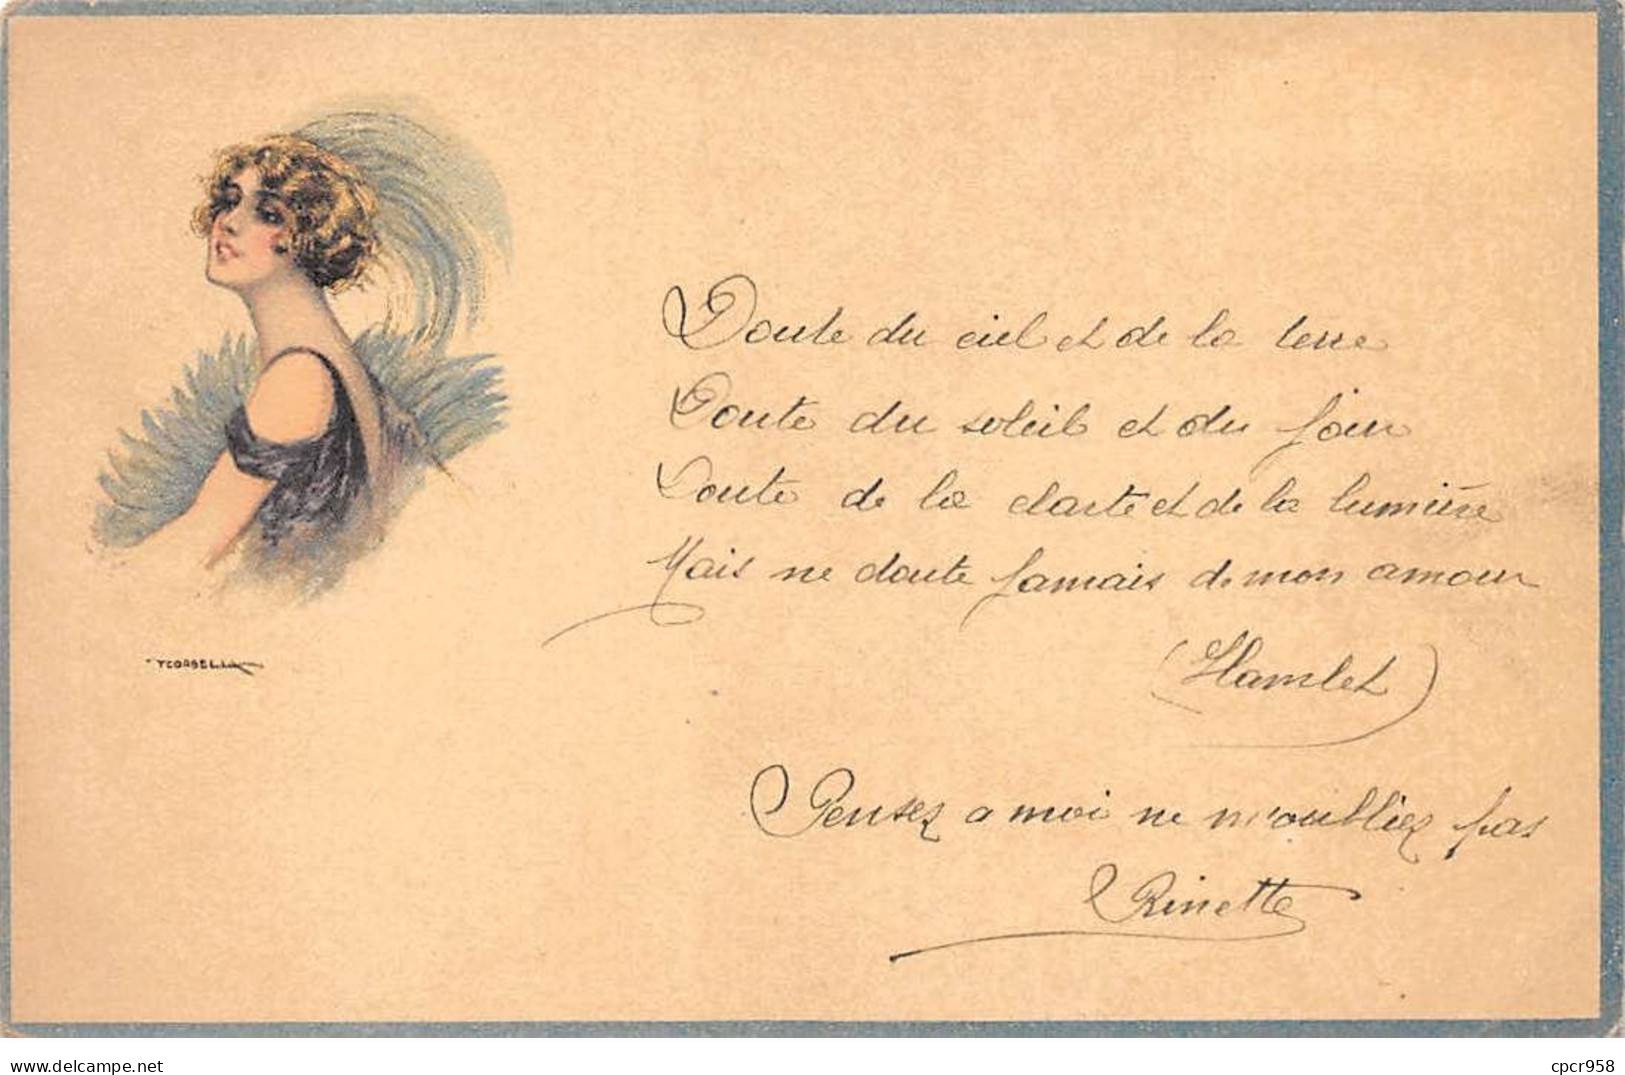 Doute du ciel et de la terre
Doute du soleil et du jour
Doute de la clarte et de la lumière
Mais ne doute jamais de mon amour
(Hamlet)
TCORBELLA
Pensez a moi ne m'oubliez pas
Rinette
cpcr958